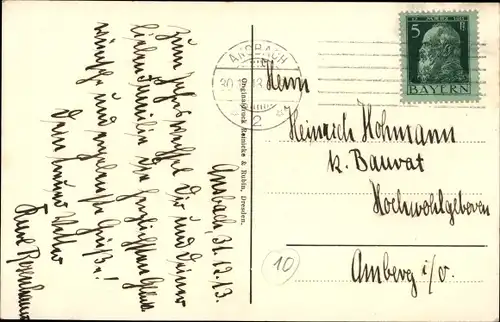 Ansbach, 31.12.13.
Zum Jahreswechsel Dir und Deiner
lieben Familie die herzlichsten Glück-
wünsche und ergebenste Grüße!
Dein treuer Vetter
Originaldruck Remicke & Rubin, Dresden.
ANSBACH
30
13
2
5 Pf
BAYERN
Herrn
Heinrich Hohmann
k. Baurat
Hochwohlgeboren
Amberg i/O.
10